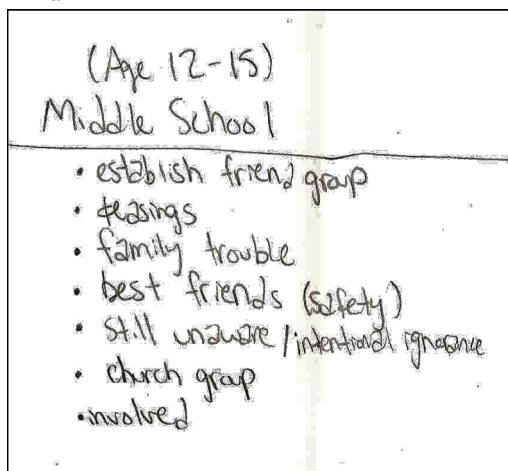 (Age 12-15)
Middle School
• establish friend group
• teasings
• family trouble
• best friends (safety)
• still unaware / intentional ignorance
• church group
• involved